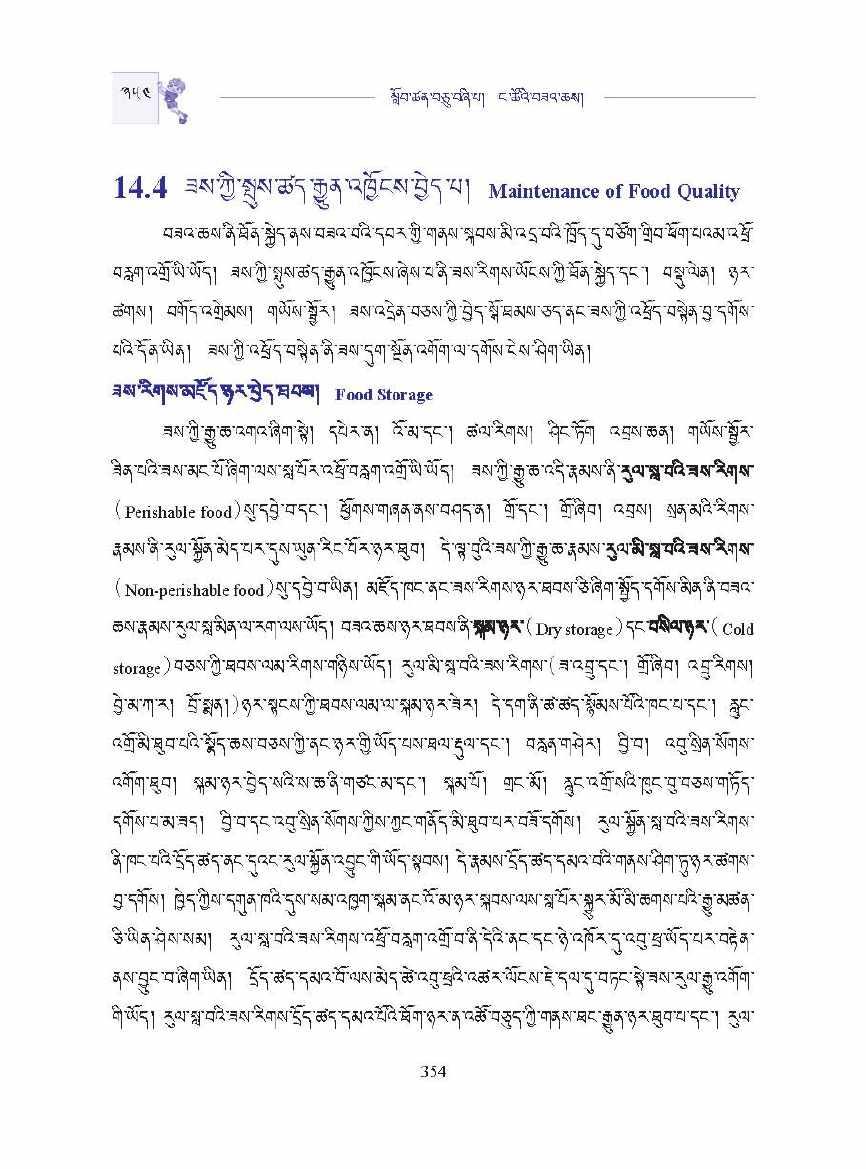 ༣༥༤
སློབ་ཚན་བཅུ་བཞི་པ། ང་ཚོའི་བཟའ་ཆས།
14.4 ཟས་ཀྱི་སྤུས་ཚད་རྒྱུན་འཁྱོངས་བྱེད་པ། Maintenance of Food Quality
བཟའ་ཆས་ནི་ཐོན་སྐྱེད་ནས་བཟའ་བའི་དབར་གྱི་གནས་སྐབས་མི་འདྲ་བའི་ཁྲོད་དུ་བཙོག་གྲིབ་ཕོག་པའམ་འཕྲོ་
བརླག་འགྲོ་ཡི་ཡོད། ཟས་ཀྱི་སྤུས་ཚད་རྒྱུན་འཁྱོངས་ཞེས་པ་ནི་ཟས་རིགས་ཡོངས་ཀྱི་ཐོན་སྐྱེད་དང་། བསྡུ་ལེན། ཉར་
ཚགས། བགོད་འགྲེམས། གཡོས་སྦྱོར། ཟས་འདྲེན་བཅས་ཀྱི་བྱེད་སྒོ་ཐམས་ཅད་ནང་ཟས་ཀྱི་འཕྲོད་བསྟེན་བྱ་དགོས་
པའི་དོན་ཡིན། ཟས་ཀྱི་འཕྲོད་བསྟེན་ནི་ཟས་དུག་སྔོན་འགོག་ལ་དགོས་ངེས་ཤིག་ཡིན།
ཟས་རིགས་མཛོད་ཉར་བྱེད་ཐབས། Food Storage
ཟས་ཀྱི་རྒྱུ་ཆ་འགའ་ཞིག་སྟེ། དཔེར་ན། འོ་མ་དང་། ཚལ་རིགས། ཤིང་ཏོག འབྲས་ཆན། གཡོས་སྦྱོར་
ཟིན་པའི་ཟས་མང་པོ་ཞིག་ལས་སླ་པོར་འཕྲོ་བརླག་འགྲོ་ཡི་ཡོད། ཟས་ཀྱི་རྒྱུ་ཆ་འདི་རྣམས་ནི་རུལ་སླ་བའི་ཟས་རིགས་
(Perishable food)སུ་དབྱེ་བ་དང་། ཕྱོགས་གཞན་ནས་བཤད་ན། གྲོ་དང་། གྲོ་ཞིབ། འབྲས། སྲན་མའི་རིགས་
རྣམས་ནི་རུལ་སྐྱོན་མེད་པར་དུས་ཡུན་རིང་པོར་ཉར་ཐུབ། དེ་ལྟ་བུའི་ཟས་ཀྱི་རྒྱུ་ཆ་རྣམས་རུལ་མི་སླ་བའི་ཟས་རིགས་
(Non-perishable food)སུ་དབྱེ་བ་ཡིན། མཛོད་ཁང་ནང་ཟས་རིགས་ཉར་ཐབས་ཅི་ཞིག་སྤྱོད་དགོས་མིན་ནི་བཟའ་
ཆས་རྣམས་རུལ་སླ་མིན་ལ་རག་ལས་ཡོད། བཟའ་ཆས་ཉར་ཐབས་ནི་སྐམ་ཉར་(Dry storage)དང་བསིལ་ཉར་(Cold
storage)བཅས་ཀྱི་ཐབས་ལམ་རིགས་གཉིས་ཡོད། རུལ་མི་སླ་བའི་ཟས་རིགས་(ཟ་འབྲུ་དང་། གྲོ་ཞིབ། འབྲུ་རིགས།
བྱེ་མ་ཀ་ར། བྲོ་སྨན།)ཉར་སྟངས་ཀྱི་ཐབས་ལམ་ལ་སྐམ་ཉར་ཟེར། དེ་དག་ནི་ཚ་ཚད་སྙོམས་པོའི་ཁང་པ་དང་། རླུང་
འགྲོ་མི་ཐུབ་པའི་སྣོད་ཆས་བཅས་ཀྱི་ནང་ཉར་གྱི་ཡོད་པས་ཐལ་རྡུལ་དང་། བརླན་གཤེར། བྱི་བ། འབུ་སྲིན་སོགས་
འགོག་ཐུབ། སྐམ་ཉར་བྱེད་སའི་ས་ཆ་ནི་གཙང་མ་དང་། སྐམ་པོ། གྲང་མོ། རླུང་འགྲོ་སའི་ཁུང་བུ་བཅས་གཏོད་
དགོས་པ་མ་ཟད། བྱི་བ་དང་འབུ་སྲིན་སོགས་ཀྱིས་ཀྱང་གནོད་མི་ཐུབ་པར་བཟོ་དགོས། རུལ་སྐྱོན་སླ་བའི་ཟས་རིགས་
ནི་ཁང་པའི་དྲོད་ཚད་ནང་དུའང་རུལ་སྐྱོན་འབྱུང་གི་ཡོད་སྟབས། དེ་རྣམས་དྲོད་ཚད་དམའ་བའི་གནས་ཤིག་ཏུ་ཉར་ཚགས་
བྱ་དགོས། ཁྱེད་ཀྱིས་དགུན་ཁའི་དུས་སམ་འཁྱག་སྒམ་ནང་འོ་མ་ཉར་སྐབས་ལས་སླ་པོར་སྐྱུར་མོ་མི་ཆགས་པའི་རྒྱུ་མཚན་
ཅི་ཡིན་ཤེས་སམ། རུལ་སླ་བའི་ཟས་རིགས་འཕྲོ་བརླག་འགྲོ་བ་ནི་དེའི་ནང་དང་ཉེ་འཁོར་དུ་འབུ་ཕྲ་ཡོད་པར་བརྟེན་
ནས་བྱུང་བ་ཞིག་ཡིན། དྲོད་ཚད་དམའ་པོ་ལས་མེད་ཚེ་འབུ་ཕྲའི་འཚར་ལོངས་ཇེ་དལ་དུ་བཏང་སྟེ་ཟས་རུལ་རྒྱུ་འགོག་
གི་ཡོད། རུལ་སླ་བའི་ཟས་རིགས་དྲོད་ཚད་དམའ་པོའི་ཐོག་ཉར་ན་འཚོ་བཅུད་ཀྱི་གནས་ཐང་རྒྱུན་ཉར་ཐུབ་པ་དང་། རུལ་
354